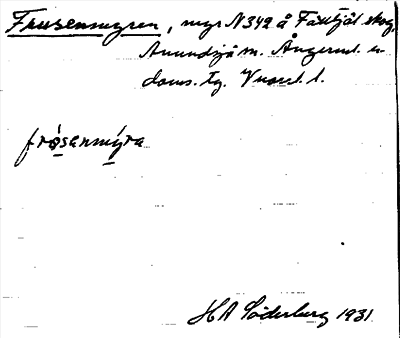 Frusenmyren, myr N 342 å Fanttjäl skog,
Anundsjö sn. Ångerml. n
doms. tg.
frósenmýra
HA Söderberg 1931